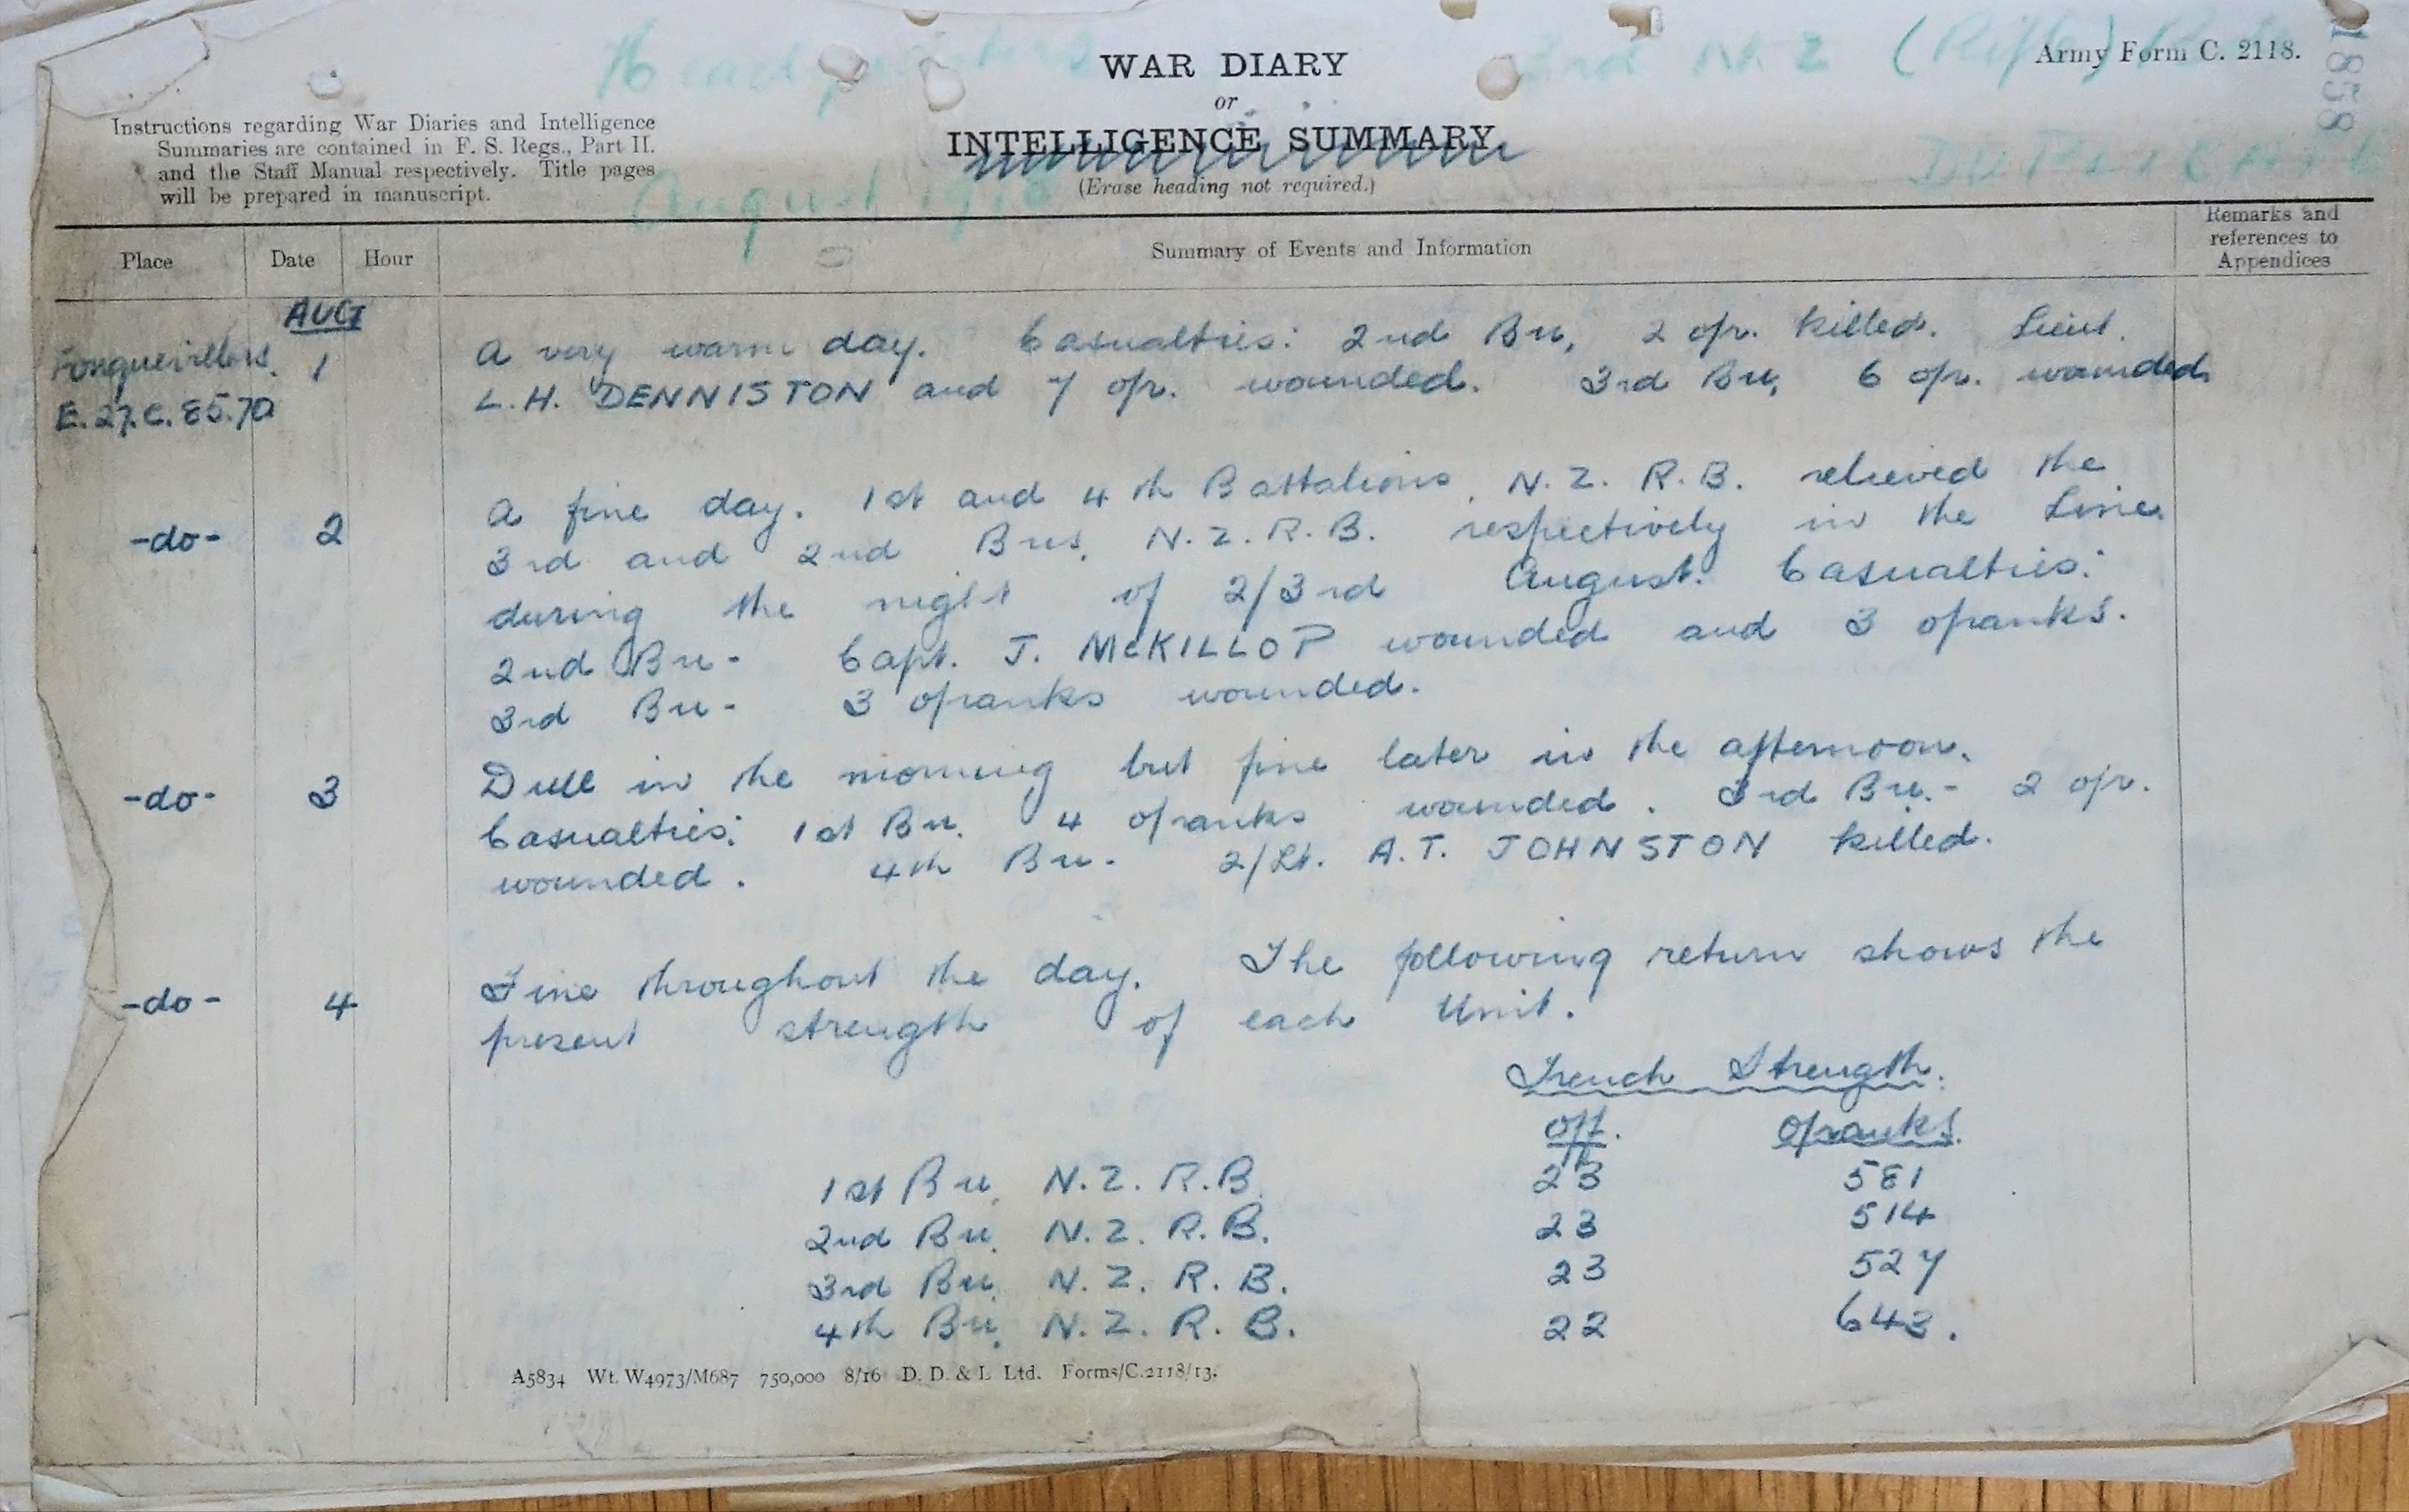 Headquarters 3rd N.Z (Rifle) Bde
WAR DIARY
Army Form C. 2118.
1858
or
INTELLIGENCE SUMMARY
(Erase heading not required.)
Instructions regarding War Diaries and Intelligence
Summaries are contained in F. S. Regs., Part II.
and the Staff Manual respectively. Title pages
will be prepared in manuscript.
August 1918
DUPLICATE
Place Date Hour Summary of Events and Information Remarks and
references to
Appendices
AUG
Fonquevillers. 1 A very warm day. Casualties: 2nd Bn, 2 o/r. killed. Lieut.
E.27.c.85.70 L.H. DENNISTON and 7 o/r. wounded. 3rd Bn, 6 o/r. wounded
-do- 2 A fine day. 1st and 4th Battalions, N.Z. R.B. relieved the
3rd and 2nd Bns, N.Z.R.B. respectively in the Line
during the night of 2/3rd August. Casualties:
2nd Bn- Capt. J. McKILLOP wounded and 3 o/ranks.
3rd Bn- 3 o/ranks wounded.
-do- 3 Dull in the morning but fine later in the afternoon.
Casualties: 1st Bn. 4 o/ranks wounded. 3rd Bn.- 2 o/r.
wounded. 4th Bn- 2/Lt. A.T. JOHNSTON killed.
-do- 4 Fine throughout the day. The following return shows the
present strength of each Unit.
Trench Strength.
Off. O/ranks.
1st Bn, N.Z. R.B. 23 581
2nd Bn, N.Z. R.B. 23 514
3rd Bn, N.Z. R.B. 23 527
4th Bn, N.Z. R.B. 22 643.
A5834 Wt. W4973/M687 750,000 8/16 D. D. & L Ltd. Forms/C.2118/13.